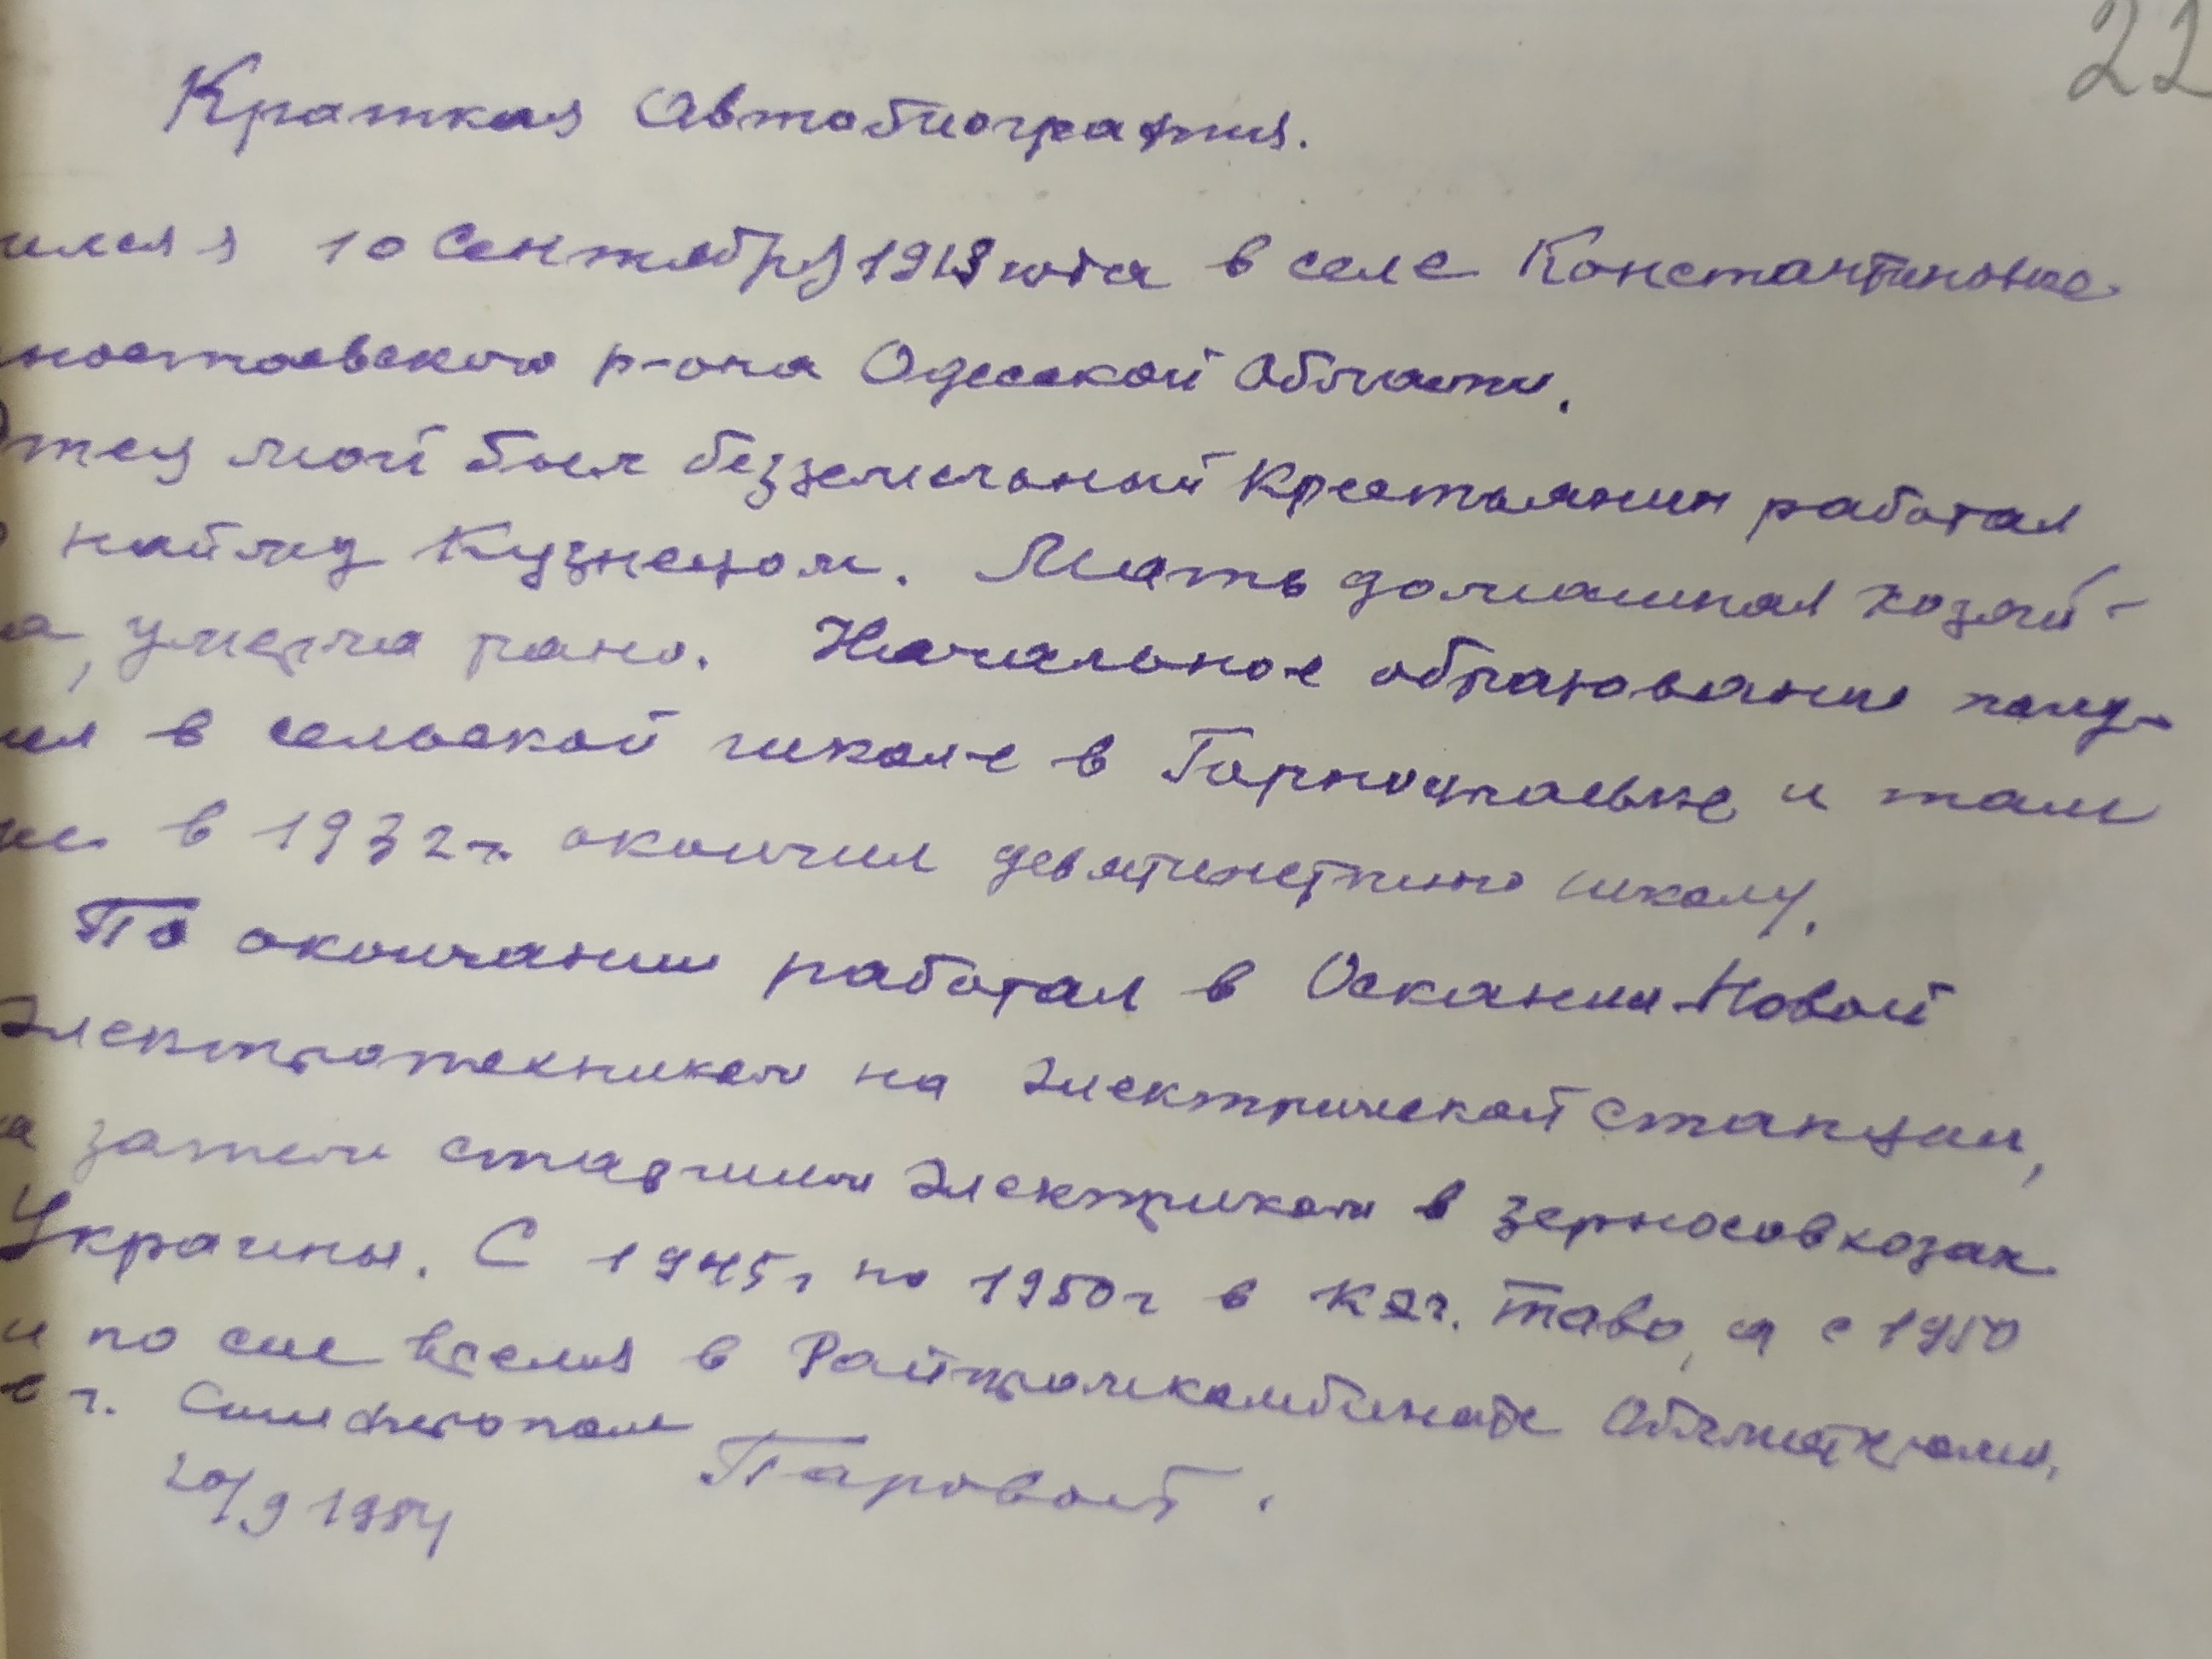 22
Краткая Автобиография.
ился я 10 Сентября 1913 года в селе Константиновке
ностаевского р-она Одесской Области.
Отец мой был безземельный Крестьянин работал
найму Кузнецом. Мать домашняя хозяй-
а, умерла рано. Начальное образование полу-
ил в сельской школе в Горностаевке и там
же в 1932 г. окончил девятилетнию школу.
По окончании работал в Оскании-Новой
Электротехником на Электрической станции,
а затем старшим Электриком в зерносовхозах
Украины. С 1945 г по 1950 г в маст. а с 1950
и по сие время в Райпромкомбинате
в г. Симферополе
20/9 1954 Паровой.